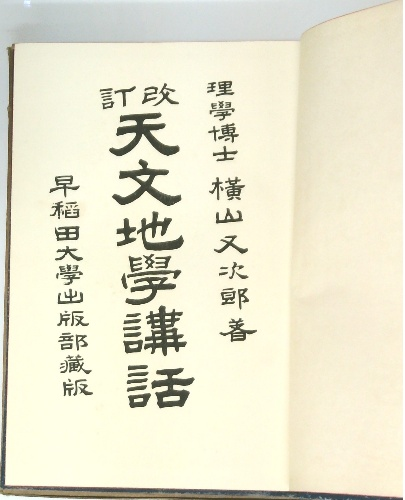 理學博士 横山又次郎著
改訂
天文地學講話
早稻田大學出版部藏版